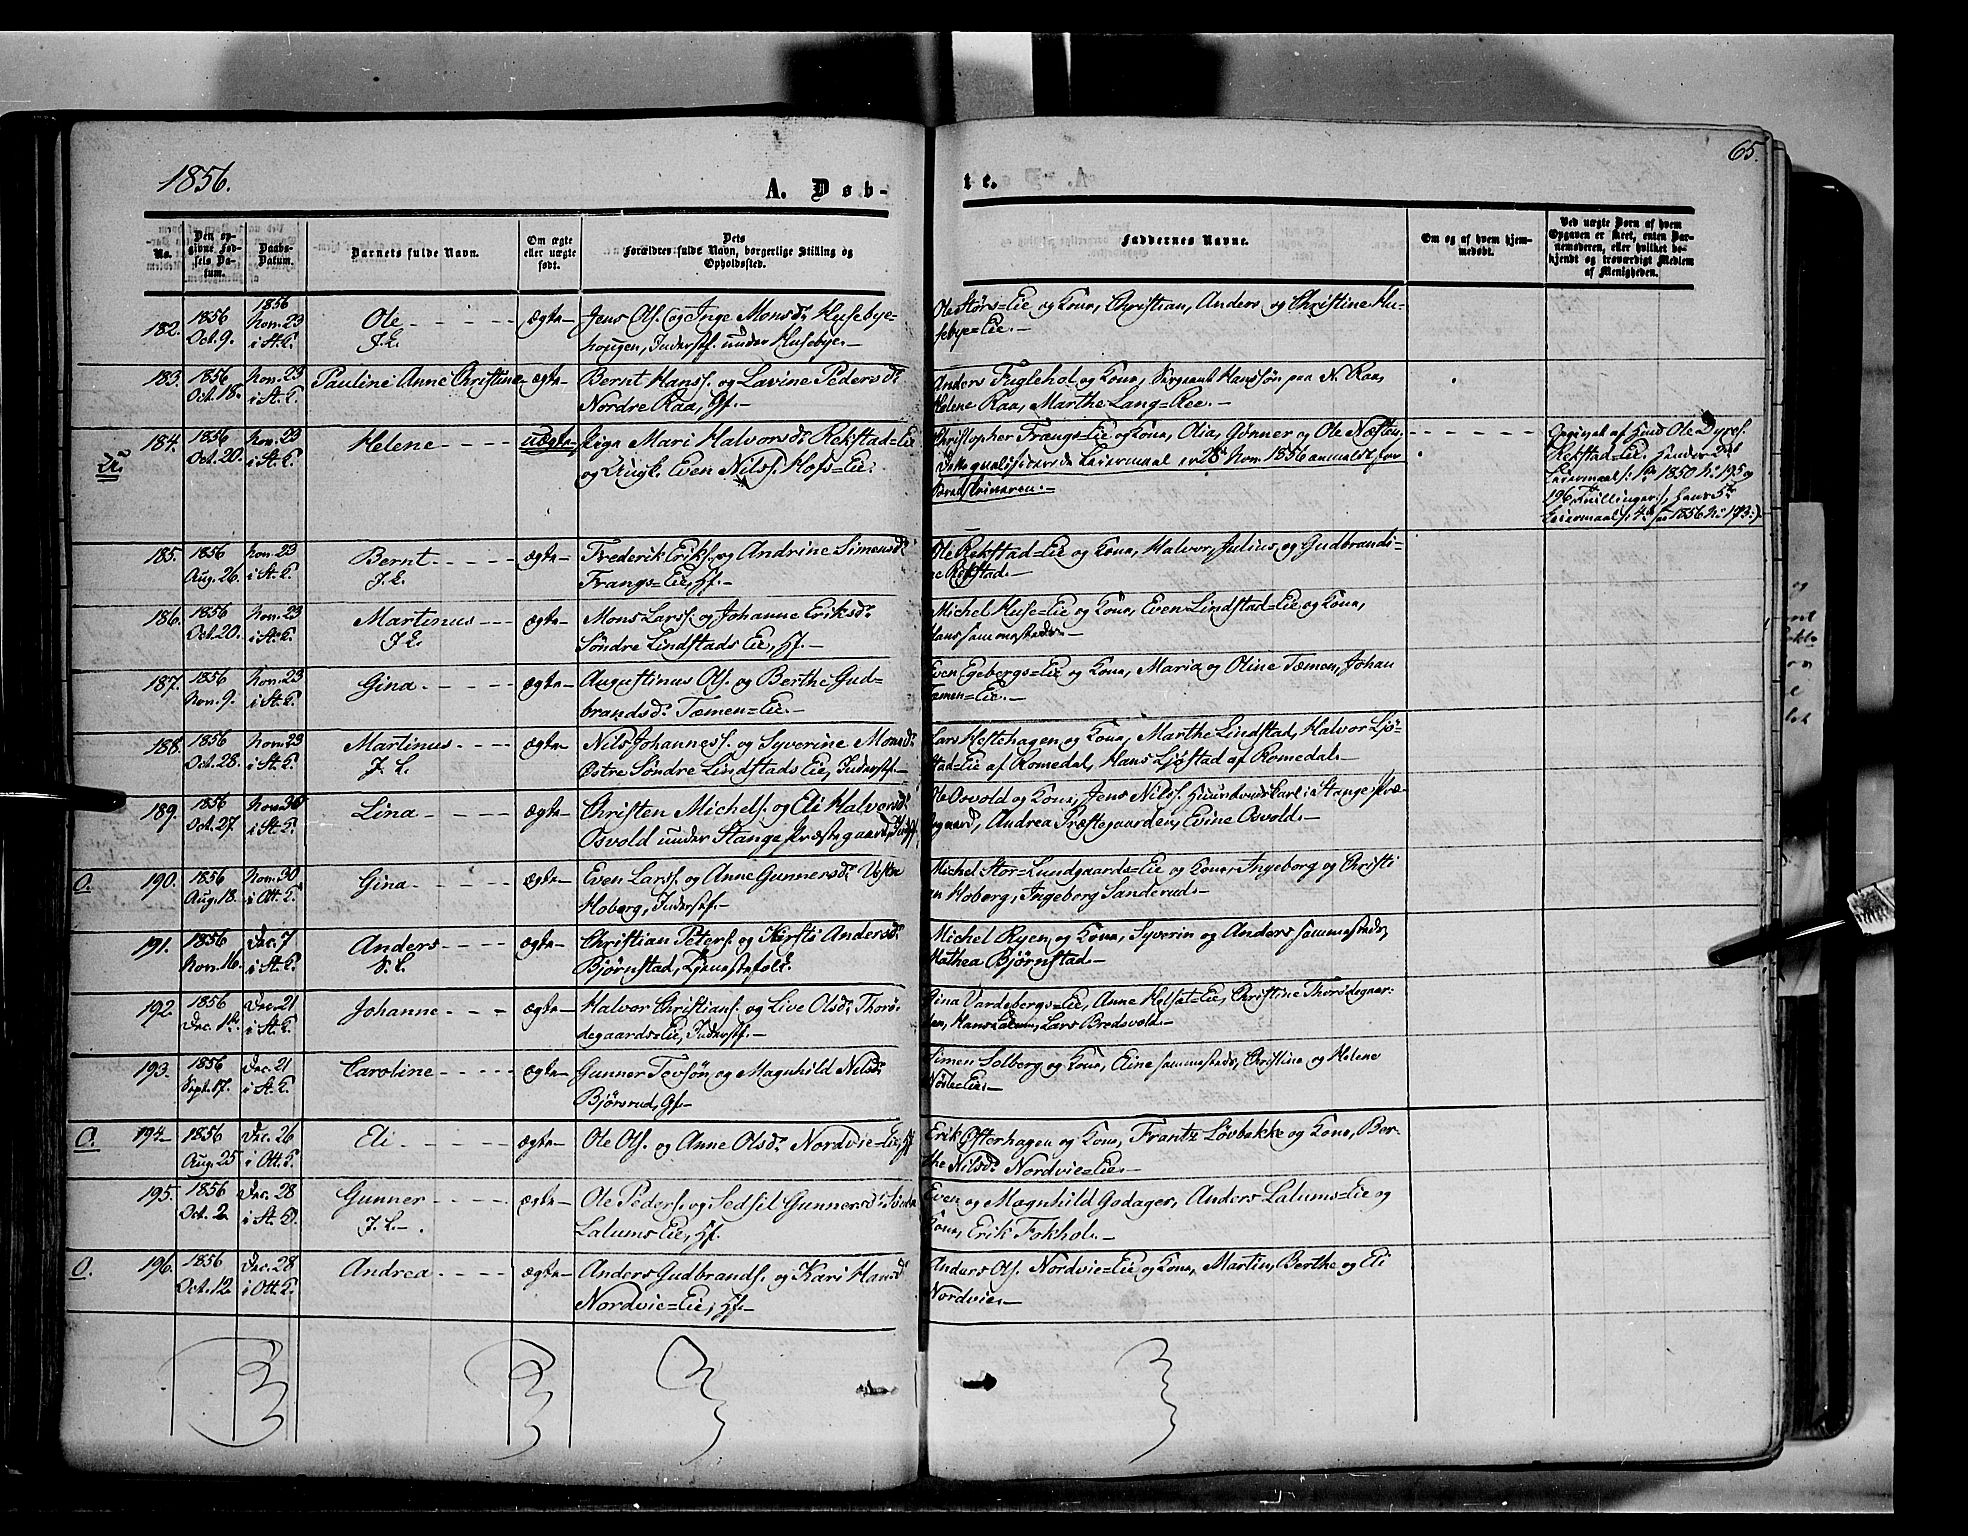 1856.
A. Døb-
te.
65.
No.
Den op-
givne Fød-
sels Da-
tum.
Daabs-
Datum.
Barnets fulde Navn.
Om ægte
eller uægte
født.
Dets
Forældres fulde Navn, borgerlige Stilling og
Opholdssted.
Faddernes Navne.
Om og af hvem hjem-
medøbt.
Ved uægte Børn af hvem
Opgaven er skeet, enten Bar-
nemoderen, eller hvilket be-
kjendt og troværdigt Medlem
af Menigheden.
182. 1856 Oct. 9. 1856 Nov. 23 i St. K. Ole J. L. ægte Jens Ols. og Inge Monsd. Husebye-
hougen, Inderstf. under Husebye.
Ole Störs=Eie og Kone, Christian, Anders og Christine Hu-
sebye=Eie.
183. 1856 Oct. 18. Nov. 23 i St. K. Pauline Anne Christine ægte Bernt Hanss. og Lavine Pedersd.
Nordre Raa, Gf.
Anders Fuglehol og Kone, Sergeant Hanssøn paa N. Raa,
Helene Raa, Marthe Lang=Ree.
184. 1856 Oct. 20. Nov. 23 i St. K. Helene uægte Pige Mari Halvorsd. Rekstad=Eie
og Ungk. Even Nilss. Hofs=Eie.
Christopher Frangs=Eie og Kone, Olia, Gønner og Ole Næsten.
Leiermaal er 28de Nov. 1856 anmeldt for
Opgivet af Ole Dyres.
Rekstad=Eie. Hendes 2det
Leiermaal 1850 No 195 og
196 Tvillinger, Hans 5te
Leiermaal 1856 No 173.
185. 1856 Aug. 26 Nov. 23 i St. K. Bernt J. L. ægte Frederik Eriks. og Andrine Simensd.
Frangs=Eie, Hf.
Ole Rekstad=Eie og Kone, Halvor, Julius, og Gudbrandi-
ne Rekstad.
186. 1856 Oct. 20. Nov. 23 i St. K. Martinus J. L. ægte Mons Larss. og Johanne Eriksd.
Søndre Lindstads Eie, Hf.
Michel Huse=Eie og Kone, Even Lindstad=Eie og Kone,
Hans sammesteds.
187. 1856 Nov. 9. Nov. 23 i St. K. Gina ægte Augustinus Ols. og Berthe Gud-
brandsd. Tæmen=Eie.
Even Egebergs=Eie og Kone, Maria og Oline Tæmen, Johan
Tæmen=Eie.
188. 1856 Oct. 28. Nov. 23 i St. K. Martinus J. L. ægte Nils Johanness. og Syverine Monsd.
Østre Søndre Lindstads Eie, Inderstf.
Lars Hestehagen og Kone, Marthe Lindstad, Halvor Ljö-
stad=Eie af Romedal, Hans Ljøstad af Romedal.
189. 1856 Oct. 27. Nov. 30 i St. K. Lina ægte Christen Michels. og Eli Halvorsd.
Osvold under Stange Præstegaard,
Ole Osvold og Kone, Jens Nilss. i Stange Præ-
stegaard, Andrea Præstegaarden, Evine Osvold.
O. 190. 1856 Aug. 18. Nov. 30 i Ott. K. Gina ægte Even Larss. og Anne Gunnersd. Vestre
Hoberg, Inderstf.
Michel Stor=Lundgaards=Eie og Kone, Ingeborg og Christi
an Hoberg, Ingeborg Sanderud.
191. 1856 Nov. 16. Dec. 7 i St. K. Anders S. L. ægte Christian Peters. og Kersti Andersd.
Bjørnstad, Tjenestefolk.
Michel Ryen og Kone, Syverin og Anders sammesteds,
Mathea Bjørnstad.
192. 1856 Dec. 14. Dec. 21 i St. K. Johanne ægte Halvor Christians. og Live Olsd. Thorö
degaards=Eie, Inderstf.
Gina Vardebergs=Eie, Anne Helset=Eie, Christine Thorödegaar-
den, Hans Lalum, Lars Bredsvold.
193. 1856 Sept. 17. Dec. 21 i St. K. Caroline ægte Gunner Tovsøn og Magnhild Nilsd.
Bjørnrud, Gf.
Simen Solberg og Kone, Eline sammesteds, Christine og Helene
Nøsle=Eie.
O. 194. 1856 Aug. 25 Dec. 26 i Ott. K. Eli ægte Ole Ols. og Anne Olsd. Nordvie=Eie, Hf
Erik Østerhagen og Kone, Frantz Løvbakke og Kone, Ber-
the Nilsd. Nordvie=Eie.
195. 1856 Oct. 2 Dec. 28 i St. K. Gunner J. L. ægte Ole Peders. og Sedsil Gunnersd.
Lalums Eie, Hf.
Even og Magnhild Godager, Anders Lalums=Eie og
Kone, Erik Fokhol.
O. 196. 1856 Oct. 12 Dec. 28 i Ott. K. Andrea ægte Anders Gudbrands. og Kari Hansd.
Nordvie=Eie, Hf.
Anders Ols. Nordvie=Eie og Kone, Martin, Berthe og Eli
Nordvie.